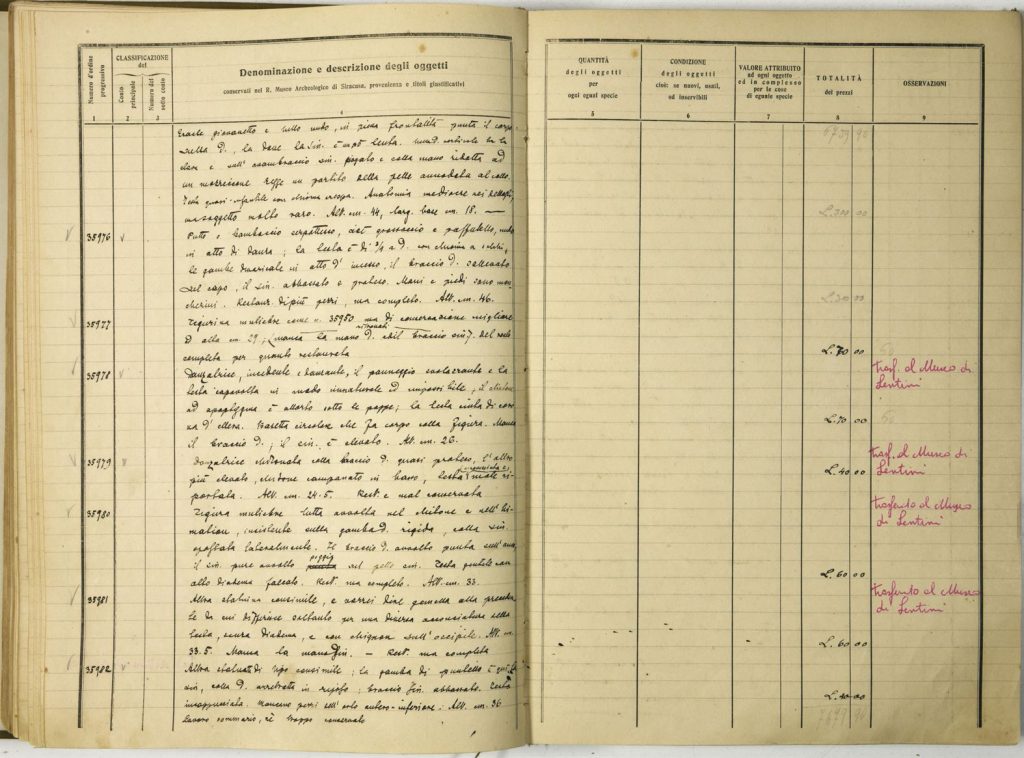 Numero d'ordine progressivo
CLASSIFICAZIONE
del
Conto principale
Numero del sotto conto
Denominazione e descrizione degli oggetti
conservati nel R. Museo Archeologico di Siracusa, provenienza e titoli giustificativi
QUANTITÀ
degli oggetti
per
ogni egual specie
CONDIZIONE
degli oggetti
cioè: se nuovi, usati,
od inservibili
VALORE ATTRIBUITO
ad ogni oggetto
ed in complesso
per le cose
di eguale specie
TOTALITÀ
dei prezzi
OSSERVAZIONI
1 2 3 4 5 6 7 8 9
giovanetto e nudo, in piena frontalità punta il corpo
sulla d.
e sull' avambraccio sin. piegato e colla mano ridotta ad
un moncicone regge un partito della pelle annodata al collo.
Testa quasi infantile con chioma crespa. Anatomia mediocre nei dettagli,
ma soggetto molto raro. Alt. cm. 44, larg. base cm. 18. —
L. 300 00
35976 v Putto grassoccio e paffutello, nudo
in atto di danza; la testa è di 3/4 a d. con chioma a
le gambe divaricate in atto d' incesso, il braccio d. sollevato
sul capo, il sin. abbassato e proteso. Mani e piedi sono
Restaur. di più pezzi, ma completo. Alt. cm. 46.
L. 30 00
35977 Figurina muliebre come n. 35950 ma di conservazione migliore
d alta cm 29; manca la mano d. ed il braccio sin. ; del resto
ritrovati
completa per quanto restaurata
L. 70 00
35978 v Danzatrice, incedente e danzante, il panneggio svolazzante e la
testa capovolta in modo innaturale ed impossibile; il chitone
ad apoptygma è attorto sotto le poppe; la testa cinta di coro
na d' ellera. Basetta circolare che fa corpo colla figura. Manca
il braccio d.; il sin. è elevato. Alt. cm. 26.
trasf. al Museo di
Lentini
L. 70 00
35979 v Danzatrice chitonata colla braccio d. quasi proteso, l' altro
più elevato, chitone campanato in basso, testa male ri-
portata. Alt. cm. 24.5. Rest. e mal conservata
trasf. al Museo di
Lentini
L. 40 00
35980 Figura muliebre tutta avvolta nel chitone e nell' hi-
mation, insistente sulla gamba d. rigida, colla sin.
spostata lateralmente. Il braccio d. avvolto punta sull' anca
il sin. pure avvolto poggia sul petto sin. Testa gentile con
alto diadema falcato. Rest. ma completo. Alt. cm. 33.
trasferito al Museo
di Lentini
L. 60 00
35981 Altra statuina consimile, e vorrei dire gemella alla preceden
te da cui differisce soltanto per una diversa acconciatura della
testa, senza diadema, e con chignon sull' occipite. Alt. cm.
33.5. Manca la mano sin. — Rest. ma completa
trasferito al Museo
di Lentini
L. 60 00
35982 v Altra statua di tipo consimile; la gamba di puntello è qui la
sin, colla d. arretrata in riposo; braccio sin. abbassato. Testa
inappuntata. Mancano pezzi nell' orlo antero-inferiore. Alt. cm. 36
Lavoro sommario, è troppo conservato
L. 40 00
7699 90